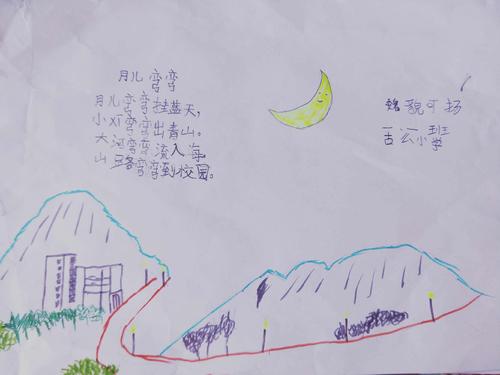 月儿弯弯
月儿弯弯挂蓝天,
小弯弯出青山。
大河弯弯流入海,
山路弯弯到校园。
貌可扬
小学
班